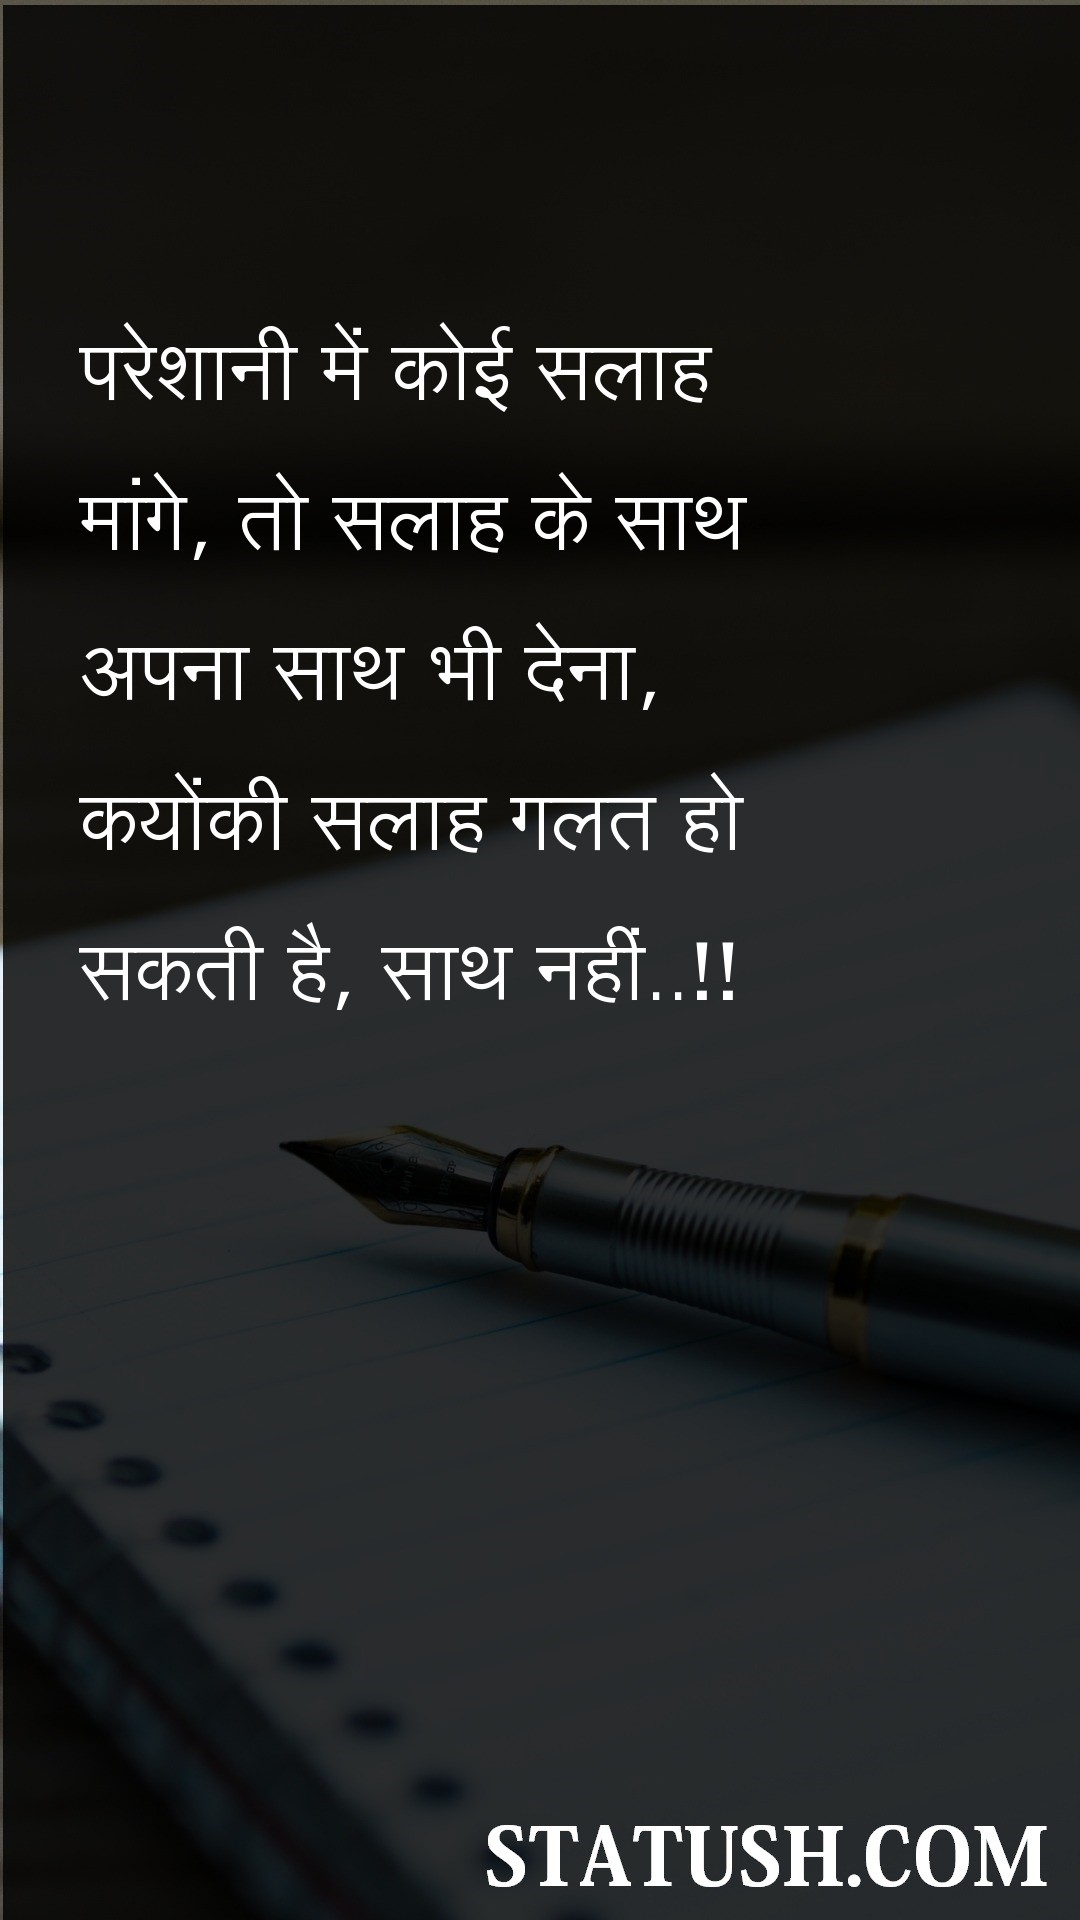 परेशानी में कोई सलाह
मांगे, तो सलाह के साथ
अपना साथ भी देना,
कयोंकी सलाह गलत हो
सकती है, साथ नहीं..!!
STATUSH.COM